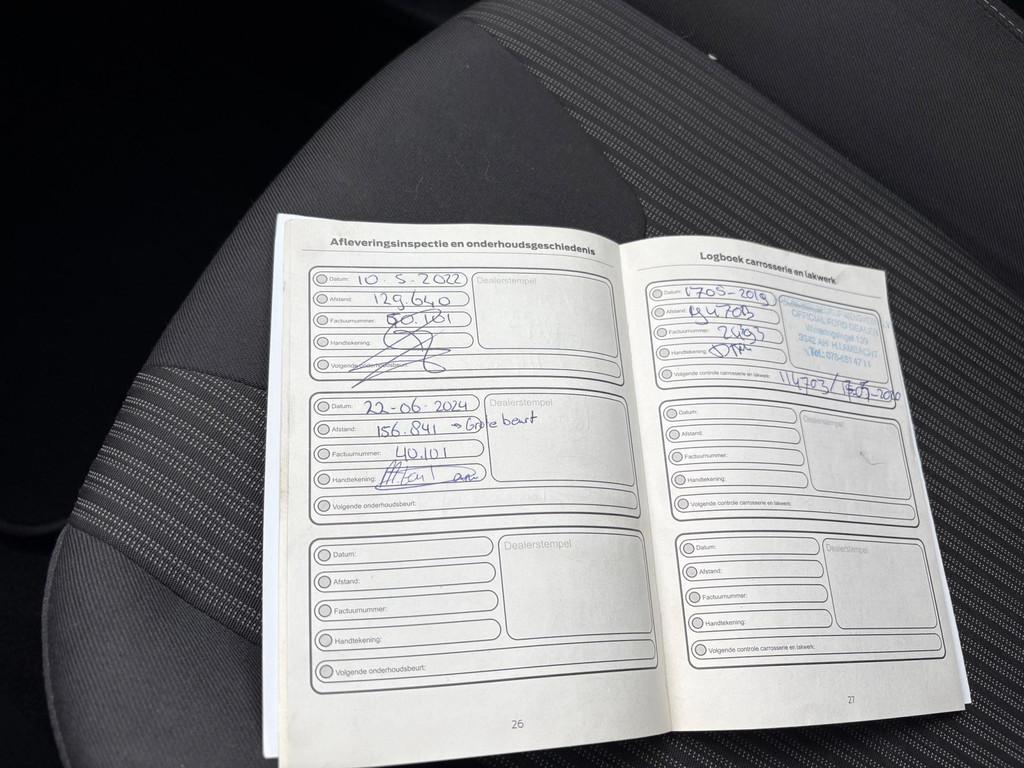 Afleveringsinspectie en onderhoudsgeschiedenis
Datum: 10.5.2022
Dealerstempel
Afstand: 129.640
Factuurnummer:
Handtekening:
Volgende onderhoudsbeurt:
Datum: 22-06-2024
Dealerstempel
Afstand: 156.841 → Grote beurt
Factuurnummer: 40.101
Handtekening:
Volgende onderhoudsbeurt:
Datum:
Dealerstempel
Afstand:
Factuurnummer:
Handtekening:
Volgende onderhoudsbeurt:
26
Logboek carrosserie en lakwerk
Datum: 1705-2019
Afstand:
Factuurnummer: 2493
Handtekening:
OFFICIAL FORD DEALER
139
3342 AH H.I.AMBACHT
Tel.: 078-681 47 11
Volgende controle carrosserie en lakwerk: 114703/
Datum:
Dealerstempel
Afstand:
Factuurnummer:
Handtekening:
Volgende controle carrosserie en lakwerk:
Datum:
Dealerstempel
Afstand:
Factuurnummer:
Handtekening:
Volgende controle carrosserie en lakwerk:
27